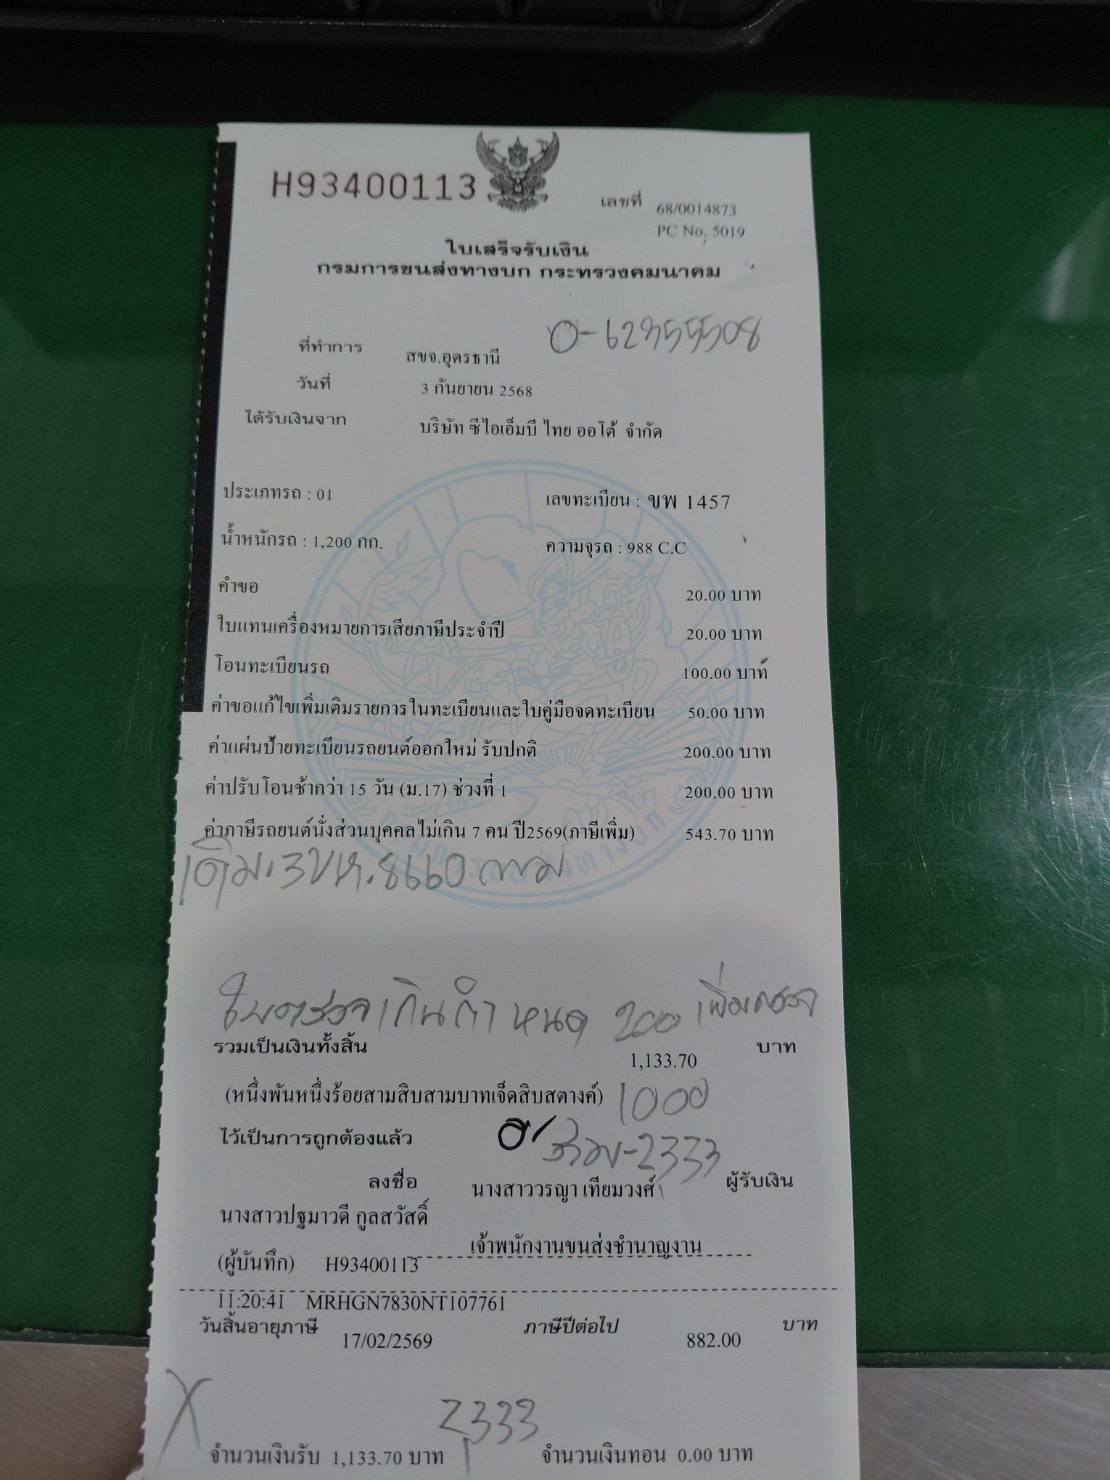 H93400113
เลขที่ 68/0014873
PC No. 5019
ใบเสร็จรับเงิน
กรมการขนส่งทางบก กระทรวงคมนาคม
ที่ทำการ สขจ.อุดรธานี
วันที่ 3 กันยายน 2568
ได้รับเงินจาก บริษัท ซีไอเอ็มบี ไทย ออโต้ จำกัด
ประเภทรถ : 01 เลขทะเบียน : ขพ 1457
น้ำหนักรถ : 1,200 กก. ความจุรถ : 988 C.C
คำขอ 20.00 บาท
ใบแทนเครื่องหมายการเสียภาษีประจำปี 20.00 บาท
โอนทะเบียนรถ 100.00 บาท
ค่าขอแก้ไขเพิ่มเติมรายการในทะเบียนและใบคู่มือจดทะเบียน 50.00 บาท
ค่าแผ่นป้ายทะเบียนรถยนต์ออกใหม่ รับปกติ 200.00 บาท
ค่าปรับโอนช้ากว่า 15 วัน (ม.17) ช่วงที่ 1 200.00 บาท
ค่าภาษีรถยนต์นั่งส่วนบุคคลไม่เกิน 7 คน ปี2569(ภาษีเพิ่ม) 543.70 บาท
เดิม.3ขห.8660 กทม
เกินกำหนด 200
รวมเป็นเงินทั้งสิ้น 1,133.70 บาท
(หนึ่งพันหนึ่งร้อยสามสิบสามบาทเจ็ดสิบสตางค์) 1000
ไว้เป็นการถูกต้องแล้ว 2333
ลงชื่อ นางสาววรญา เทียมวงศ์ ผู้รับเงิน
นางสาวปฐมาวดี กูลสวัสดิ์
เจ้าพนักงานขนส่งชำนาญงาน
(ผู้บันทึก) H93400113
11:20:41 MRHGN7830NT107761
วันสิ้นอายุภาษี 17/02/2569 ภาษีปีต่อไป 882.00 บาท
2333
จำนวนเงินรับ 1,133.70 บาท จำนวนเงินทอน 0.00 บาท